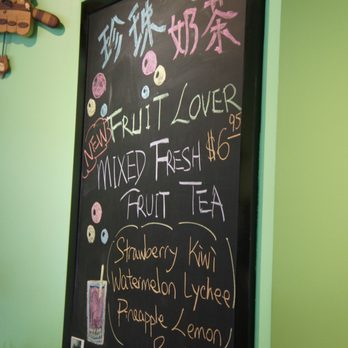 珍珠奶茶
NEW! FRUIT LOVER
MIXED FRESH $6.95
FRUIT TEA
Strawberry Kiwi
Watermelon Lychee
Pineapple Lemon